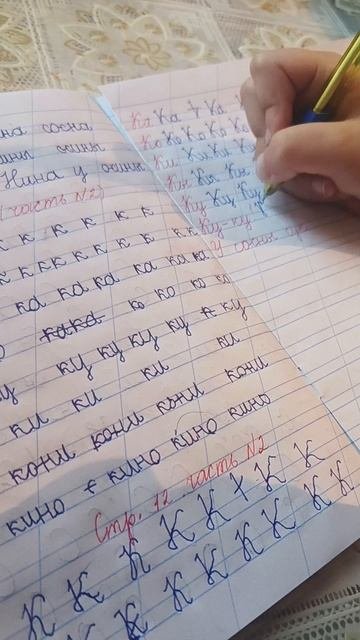 сосна
осины
Нина у осины
(часть №2)
к к к к к
к к к к к к к к к
ка ка ка ка ка ка
кака ко ко ко ко
ку ку ку ку + ку
ки ки ки ки
кони кони кони кони
кино + кино кино кино
Стр. 12 часть №2
К К К К К + К К
К К К К К К К
Ка Ка + Ка
Ко Ко Ко Ко Ко
Ки Ки Ки Ки
Кн Кн Кн
Ку Ку Ку
Ку-ку
У сосны